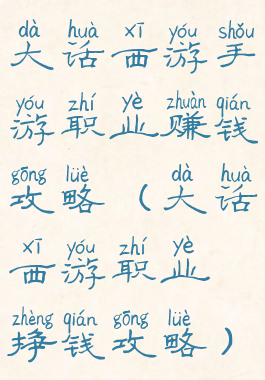 dà huà xī yóu shǒu
大话西游手
yóu zhí yè zhuàn qián
游职业赚钱
gōng lüè dà huà
攻略（大话
xī yóu zhí yè
西游职业
zhèng qián gōng lüè
挣钱攻略）